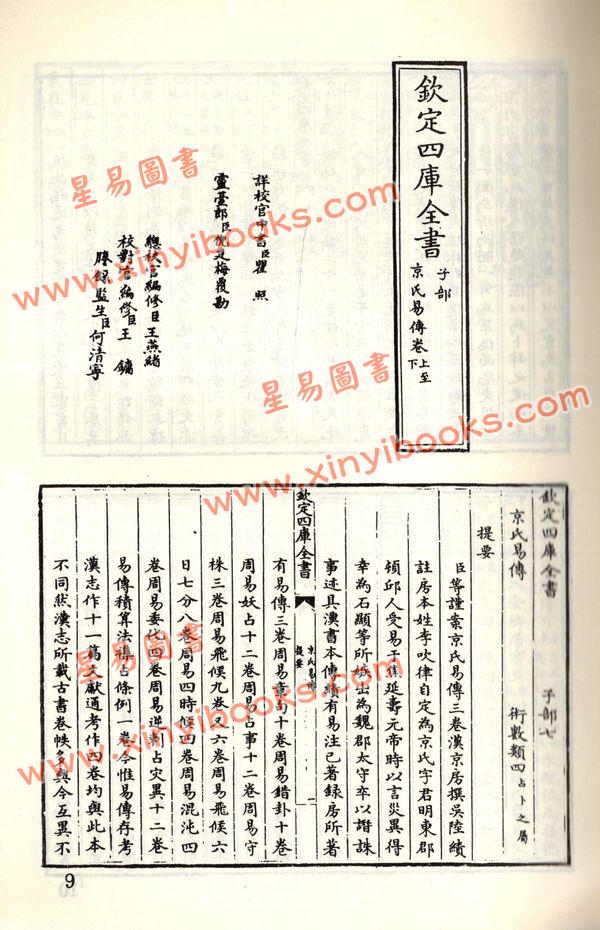 欽定四庫全書
子部
京氏易傳卷上至
下
詳校官中書臣瞿照
靈臺郎臣倪廷梅覆勘
總校官編修臣王燕緒
校對官編修臣王鏞
謄錄監生臣何清寧
欽定四庫全書 子部七
京氏易傳 術數類四占卜之屬
提要
臣等謹案京氏易傳三卷漢京房撰吳陸績
註房本姓李吹律自定為京氏字君明東郡
頓邱人受易于焦延壽元帝時以言災異得
幸為石顯等所嫉出為魏郡太守卒以譖誅
事迹具漢書本傳績有易注已著録房所著
欽定四庫全書
京氏易傳
提要
一
有易傳三卷周易章句十卷周易錯卦十卷
周易妖占十二卷周易占事十二卷周易守
株三卷周易飛候九卷又六卷周易飛候六
日七分八卷周易四時候四卷周易混沌四
卷周易委化四卷周易逆刺占災異十二卷
易傳積算法雜占條例一卷今惟易傳存考
漢志作十一篇文獻通考作四卷均與此本
不同然漢志所載古書卷帙多與今互異不
9
星易圖書
www.xinyibooks.com
星易圖書
www.xinyibooks.com
星易圖書
www.xinyibooks.com
星易圖書
www.xinyibooks.com